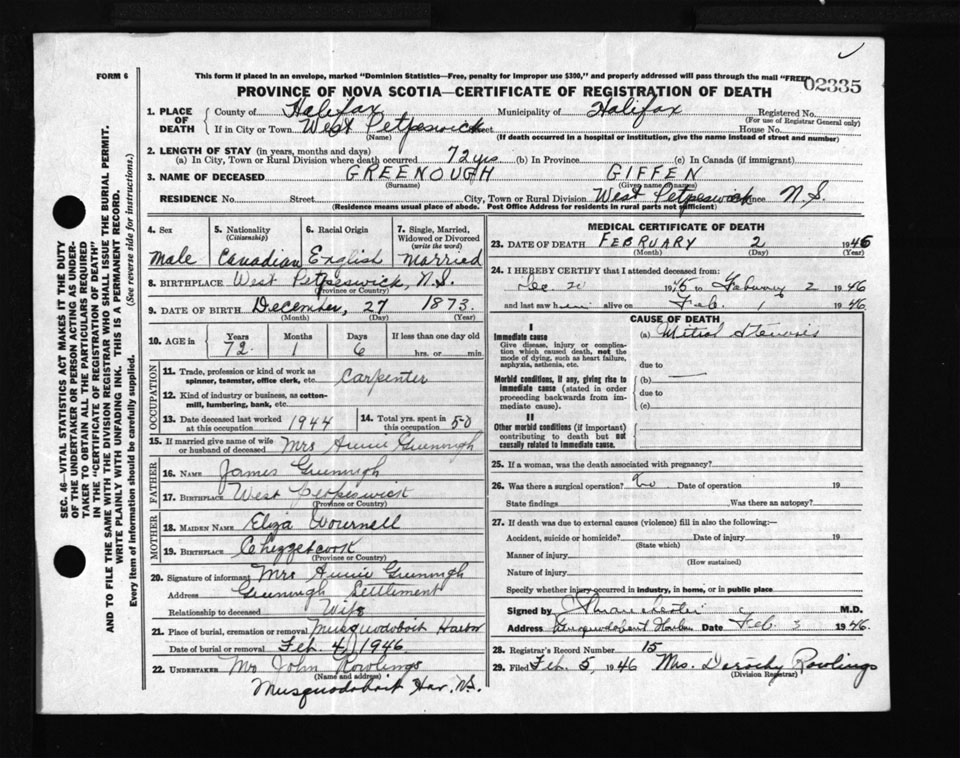 FORM 6
This form if placed in an envelope, marked "Dominion Statistics—Free, penalty for improper use $300," and properly addressed will pass through the mail "FREE"
02335
PROVINCE OF NOVA SCOTIA—CERTIFICATE OF REGISTRATION OF DEATH
1. PLACE OF DEATH
County of Halifax Municipality of Halifax Registered No.
(For use of Registrar General only)
If in City or Town West Petpeswick Street House No.
(Name) (If death occurred in a hospital or institution, give the name instead of street and number)
2. LENGTH OF STAY (in years, months and days)
(a) In City, Town or Rural Division where death occurred 72 yrs (b) In Province (c) In Canada (if immigrant)
3. NAME OF DECEASED GREENOUGH GIFFEN
(Surname) (Given name or names)
RESIDENCE No. Street City, Town or Rural Division West Petpeswick Province N.S.
(Residence means usual place of abode. Post Office Address for residents in rural parts not sufficient)
4. Sex
Male
5. Nationality (Citizenship)
Canadian
6. Racial Origin
English
7. Single, Married, Widowed or Divorced (write the word)
Married
8. BIRTHPLACE West Petpeswick, N.S.
(Province or Country)
9. DATE OF BIRTH December, 27 1873.
(Month) (Day) (Year)
10. AGE in Years Months Days If less than one day old
72 1 6 hrs. or min.
OCCUPATION
11. Trade, profession or kind of work as spinner, teamster, office clerk, etc. Carpenter
12. Kind of industry or business, as cotton-mill, lumbering, bank, etc.
13. Date deceased last worked at this occupation 1944
14. Total yrs. spent in this occupation 50
15. If married give name of wife or husband of deceased Mrs Annie Greenough
FATHER
16. NAME James Greenough
17. BIRTHPLACE West Petpeswick
(Province or Country)
MOTHER
18. MAIDEN NAME Eliza Wournell
19. BIRTHPLACE Chezzetcook
(Province or Country)
20. Signature of informant Mrs Annie Greenough
Address Greenough Settlement
Relationship to deceased Wife
21. Place of burial, cremation or removal Musquodoboit Harbor
Date of burial or removal Feb. 4, 1946.
22. UNDERTAKER Mr John Rowlings
(Name and address)
Musquodoboit Har. N.S.
MEDICAL CERTIFICATE OF DEATH
23. DATE OF DEATH FEBRUARY 2 1946
(Month) (Day) (Year)
24. I HEREBY CERTIFY that I attended deceased from:
Dec. 20 1945 to February 2 1946
and last saw him alive on Feb. 1 1946.
CAUSE OF DEATH
I
Immediate cause
Give disease, injury or complication which caused death, not the mode of dying, such as heart failure, asphyxia, asthenia, etc.
(a) Mitral Stenosis
due to
Morbid conditions, if any, giving rise to immediate cause (stated in order proceeding backwards from immediate cause).
(b)
due to
(c)
II
Other morbid conditions (if important) contributing to death but not causally related to immediate cause.
25. If a woman, was the death associated with pregnancy?
26. Was there a surgical operation? No Date of operation 19
State findings Was there an autopsy?
27. If death was due to external causes (violence) fill in also the following:—
Accident, suicide or homicide? Date of injury 19
(State which)
Manner of injury
(How sustained)
Nature of injury
Specify whether injury occurred in industry, in home, or in public place
Signed by M.D.
Address Musquodoboit Harbor Date Feb. 3 1946.
28. Registrar's Record Number 15
29. Filed Feb. 5, 1946 Mrs. Dorothy Rowlings
(Division Registrar)
SEC. 46—VITAL STATISTICS ACT MAKES IT THE DUTY
OF THE UNDERTAKER OR PERSON ACTING AS UNDER-
TAKER TO OBTAIN ALL THE PARTICULARS REQUIRED
IN THE "CERTIFICATE OF REGISTRATION OF DEATH"
AND TO FILE THE SAME WITH THE DIVISION REGISTRAR WHO SHALL ISSUE THE BURIAL PERMIT.
WRITE PLAINLY WITH UNFADING INK. THIS IS A PERMANENT RECORD.
Every item of information should be carefully supplied. (See reverse side for instructions.)